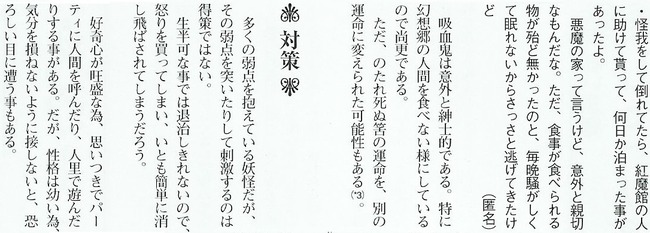 ・怪我をして倒れてたら、紅魔館の人
に助けて貰って、何日か泊まった事が
あったよ。
悪魔の家って言うけど、意外と親切
なもんだな。ただ、食事が食べられる
物が殆ど無かったのと、毎晩騒がしく
て眠れないからさっさと逃げてきたけ
ど
（匿名）
吸血鬼は意外と紳士的である。特に
幻想郷の人間を食べない様にしている
ので尚更である。
ただ、のたれ死ぬ筈の運命を、別の
運命に変えられた可能性もある(*3)。
対策
多くの弱点を抱えている妖怪だが、
その弱点を突いたりして刺激するのは
得策ではない。
生半可な事では退治しきれないので、
怒りを買ってしまい、いとも簡単に消
し飛ばされてしまうだろう。
好奇心が旺盛な為、思いつきでパー
ティに人間を呼んだり、人里で遊んだ
りする事がある。だが、性格は幼い為、
気分を損ねないように接しないと、恐
ろしい目に遭う事もある。